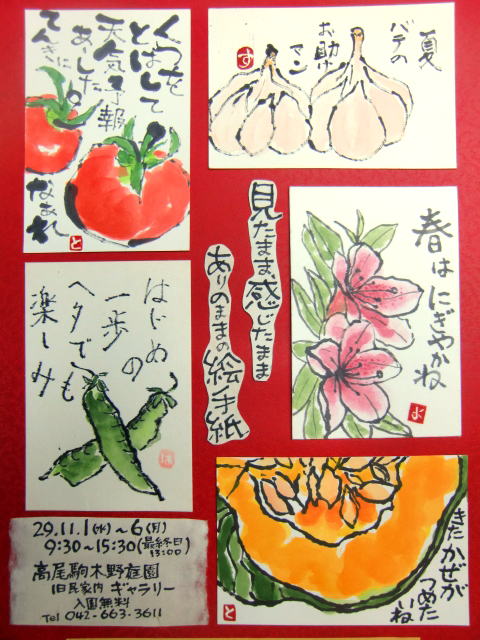 くつを
とばして
天気予報
あした
てんきに
なあれ
と
夏
バテの
お助け
マン
す
見たまま、感じたまま
ありのままの絵手紙
春はにぎやかね
よ
はじめ
の
一歩
ヘタでも
楽しみ
29.11.1(水)～6(月)
9:30～15:30(最終日
13:00)
高尾駒木野庭園
旧民家内ギャラリー
入園無料
Tel 042-663-3611
きた かぜが
つめた
いね
と